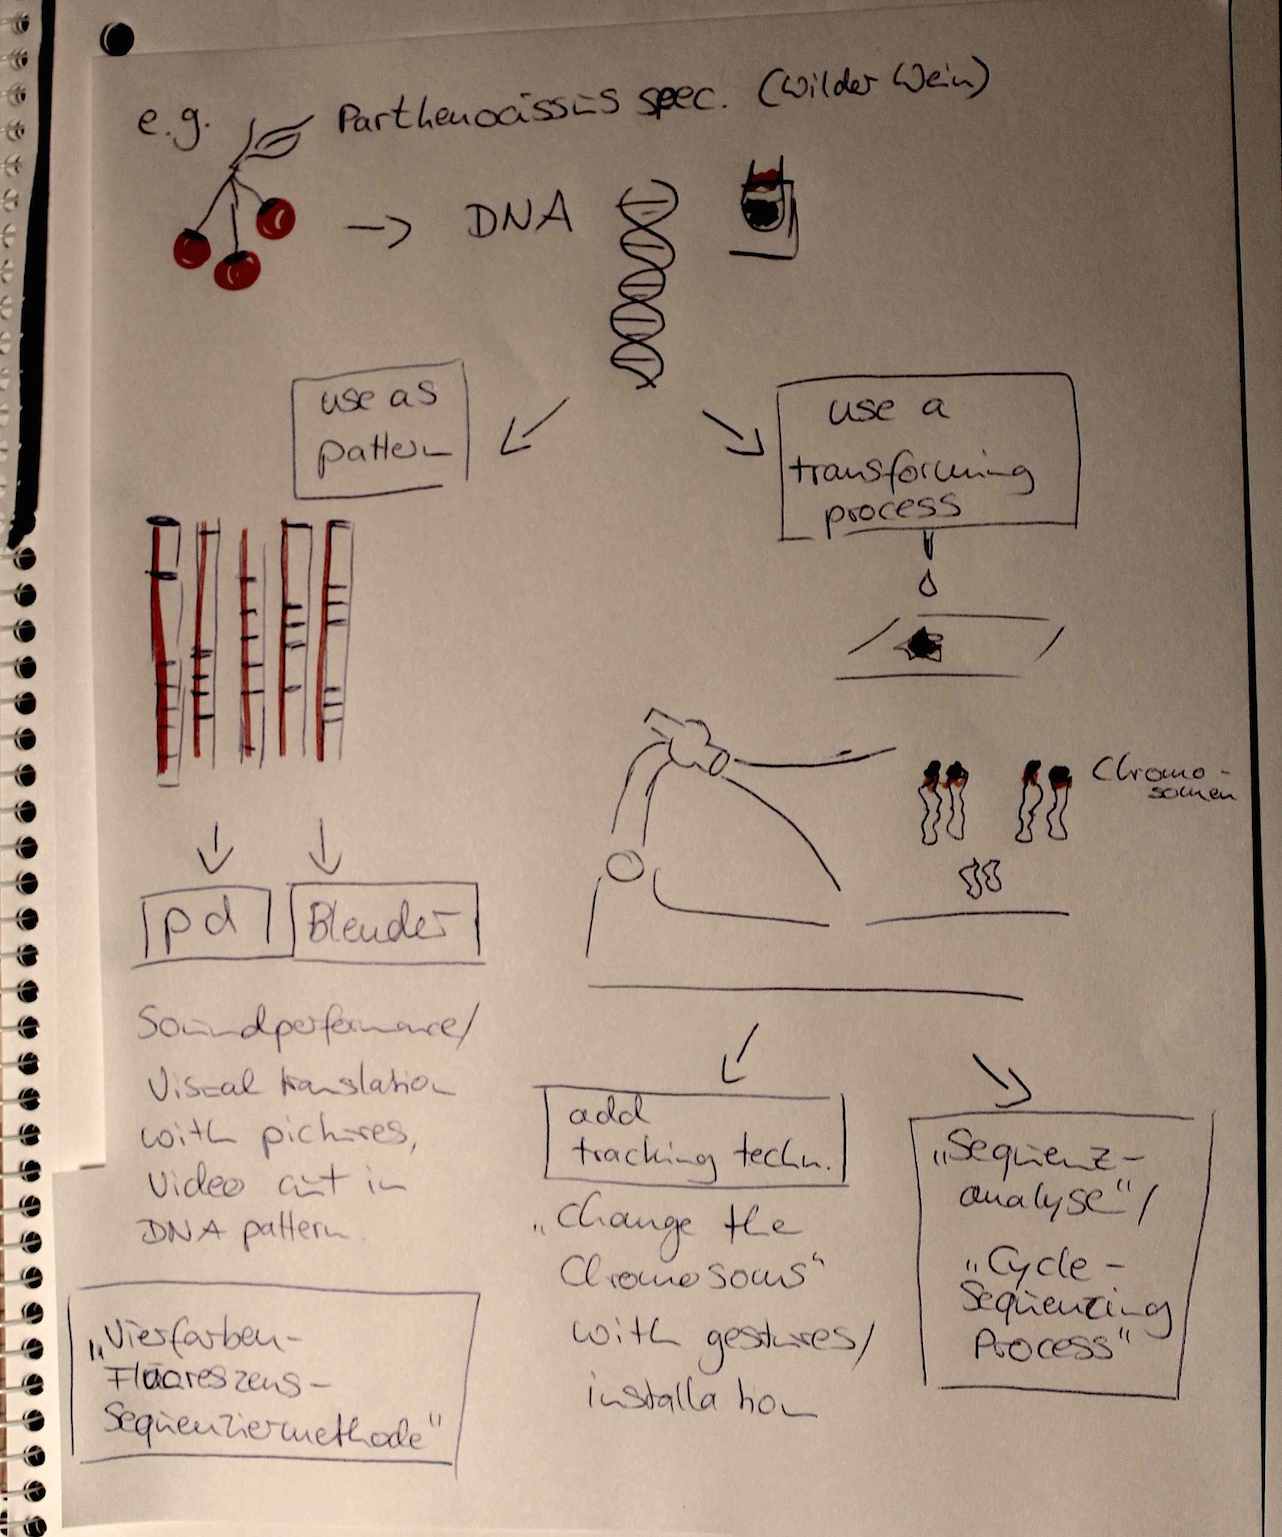 e.g. Parthenocissus spec. (Wilder Wein)
DNA
use as
pattern
use a
transforming
process
Chromo-
somen
pd
Blender
Soundperformance/
Visual translation
with pictures,
Video cut in
DNA pattern.
"Vierfarben-
Fluoreszens-
Sequenziermethode"
add
tracking techn.
"Change the
Chromosoms"
with gestures/
installation
"Sequenz-
analyse"/
"Cycle-
Sequenzing
Process"